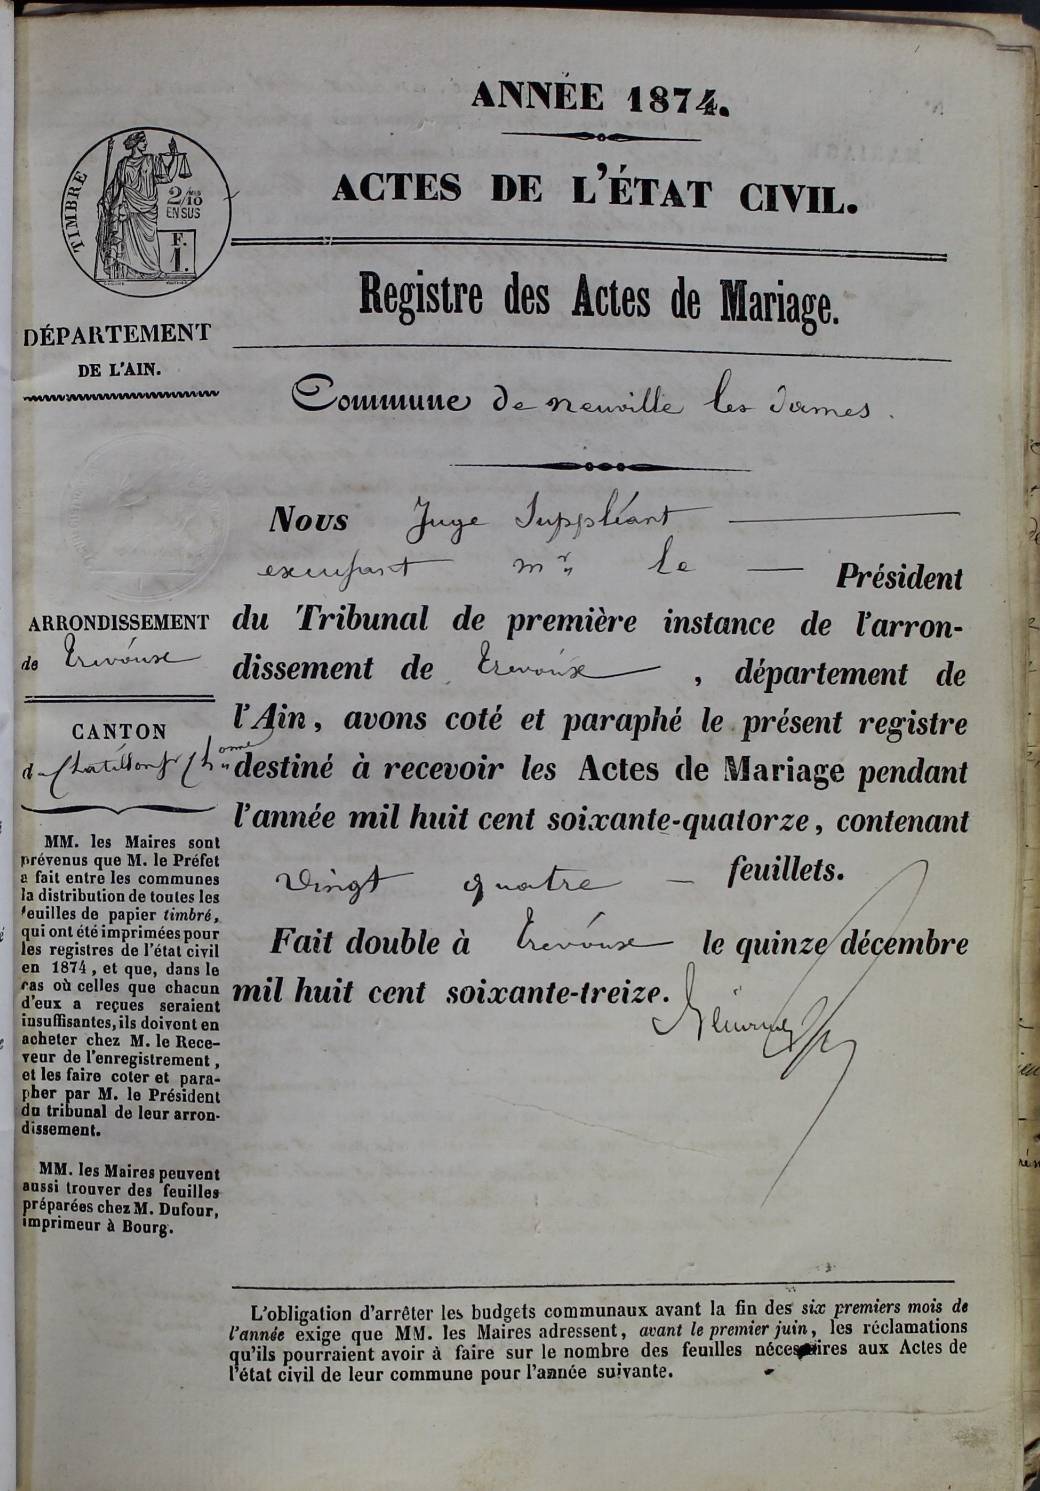 ANNÉE 1874.
ACTES DE L'ÉTAT CIVIL.
TIMBRE
2/10
EN SUS
F.
1.
Registre des Actes de Mariage.
DÉPARTEMENT
DE L'AIN.
Commune de neuville les dames.
Nous Juge Suppléant
Mr le Président
du Tribunal de première instance de l'arron-
dissement de Trévoux, département de
l'Ain, avons coté et paraphé le présent registre
destiné à recevoir les Actes de Mariage pendant
l'année mil huit cent soixante-quatorze, contenant
vingt quatre feuillets.
Fait double à Trévoux le quinze décembre
mil huit cent soixante-treize.
ARRONDISSEMENT
de Trévoux
CANTON
de Chatillon
MM. les Maires sont
prévenus que M. le Préfet
a fait entre les communes
la distribution de toutes les
feuilles de papier timbré,
qui ont été imprimées pour
les registres de l'état civil
en 1874, et que, dans le
cas où celles que chacun
d'eux a reçues seraient
insuffisantes, ils doivent en
acheter chez M. le Rece-
veur de l'enregistrement,
et les faire coter et para-
pher par M. le Président
du tribunal de leur arron-
dissement.
MM. les Maires peuvent
aussi trouver des feuilles
préparées chez M. Dufour,
imprimeur à Bourg.
L'obligation d'arrêter les budgets communaux avant la fin des six premiers mois de
l'année exige que MM. les Maires adressent, avant le premier juin, les réclamations
qu'ils pourraient avoir à faire sur le nombre des feuilles nécessaires aux Actes de
l'état civil de leur commune pour l'année suivante.